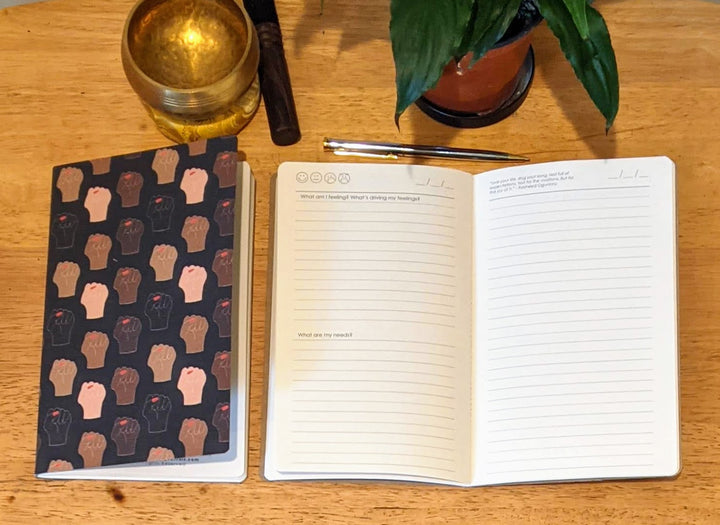 __/__/__
What am I feeling? What's driving my feelings?
What are my needs?
__/__/__
"Live your life, sing your song. Not full of
expectations. Not for the ovations. But for
the joy of it." - Rasheed Ogunlaru